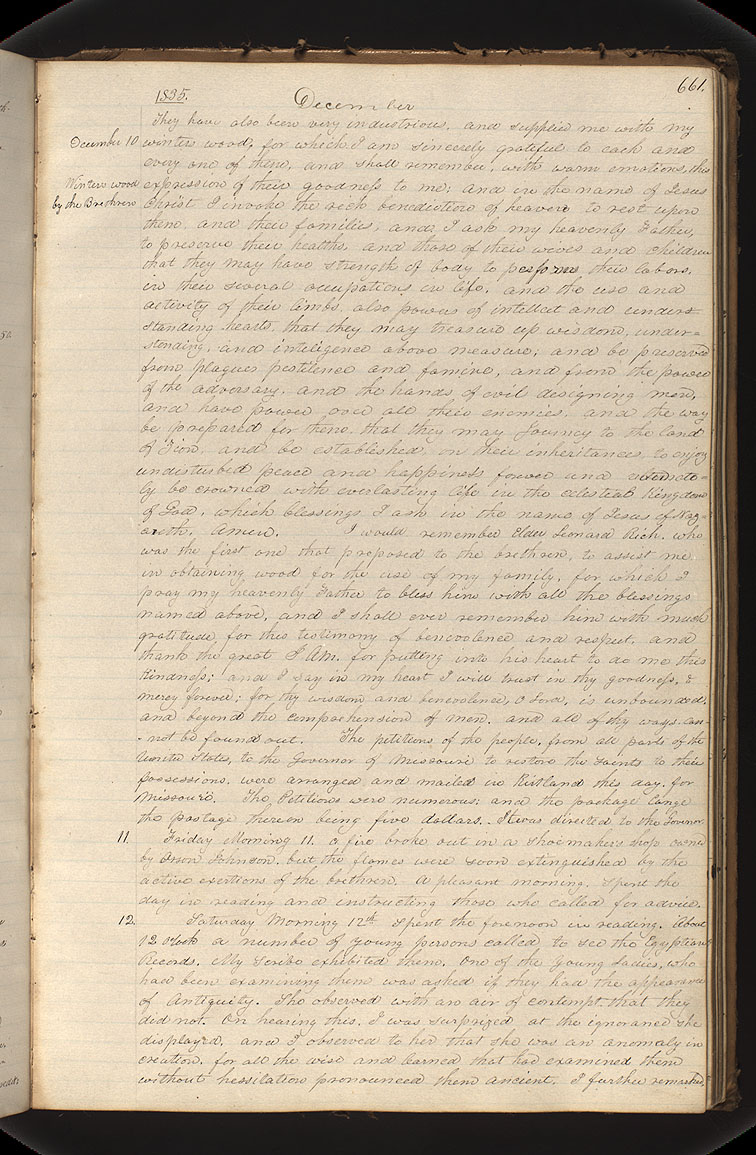 661.
1835. December
They have also been very industrious, and supplied me with my
December 10 winters wood, for which I am sincerely grateful to each and
every one of them, and shall remember, with warm emotions, this
Winters wood expression of their goodness to me; and in the name of Jesus
by the Brethren Christ I invoke the rich benediction of heaven to rest upon
them, and their families; and I ask my heavenly Father,
to preserve their healths, and those of their wives and children
that they may have strength of body to perform their labors,
in their several occupations in life, and the use and
activity of their limbs, also powers of intellect and under-
standing hearts, that they may treasure up wisdom, under=
standing, and inteligence above measure; and be preserved
from plagues pestilence and famine, and from the power
of the adversary, and the hands of evil designing men,
and have power over all their enemies, and the way
be prepared for them, that they may Journey to the land
of Zion, and be established, on their inheritances, to enjoy
undisturbed peace and happiness forever and
ly be crowned with everlasting life in the celestial Kingdom
of God, which blessings I ask in the name of Jesus of Naz=
areth. Amen. I would remember Elder Leonard Rich, who
was the first one that proposed to the brethren, to assist me
in obtaining wood for the use of my family, for which I
pray my heavenly Father to bless him with all the blessings
named above, and I shall ever remember him with much
gratitude, for this testimony of benevolence and respect, and
thank the great I Am, for putting into his heart to do me this
Kindness; and I say in my heart I will trust in thy goodness, &
mercy forever; for thy wisdom and benevolence, O Lord, is unbounded,
and beyond the comprehension of men, and all of thy ways can-
not be found out. The petitions of the people, from all parts of the
United States, to the Governor of Missouri to restore the Saints to their
possessions, were arranged and mailed in Kirtland this day, for
Missouri. The Petitions were numerous; and the package large
the postage thereon being five dollars. It was directed to the Governor.
11. Friday Morning 11. a fire broke out in a shoemaker's shop owned
by Orson Johnson, but the flames were soon extinguished by the
active exertions of the brethren. A pleasant morning. Spent the
day in reading and instructing those who called for advice.
12. Saturday Morning 12th Spent the forenoon in reading. About
12 o'clock a number of young persons called to see the Egyptian
Records. My Scribe exhibited them. One of the young ladies, who
had been examining them was asked if they had the appearance
of Antiquity. She observed with an air of contempt that they
did not. On hearing this, I was surprized at the ignorance she
displayed, and I observed to her that she was an anomaly in
creation, for all the wise and learned that had examined them
without hessitation pronounced them ancient. I further remarked,